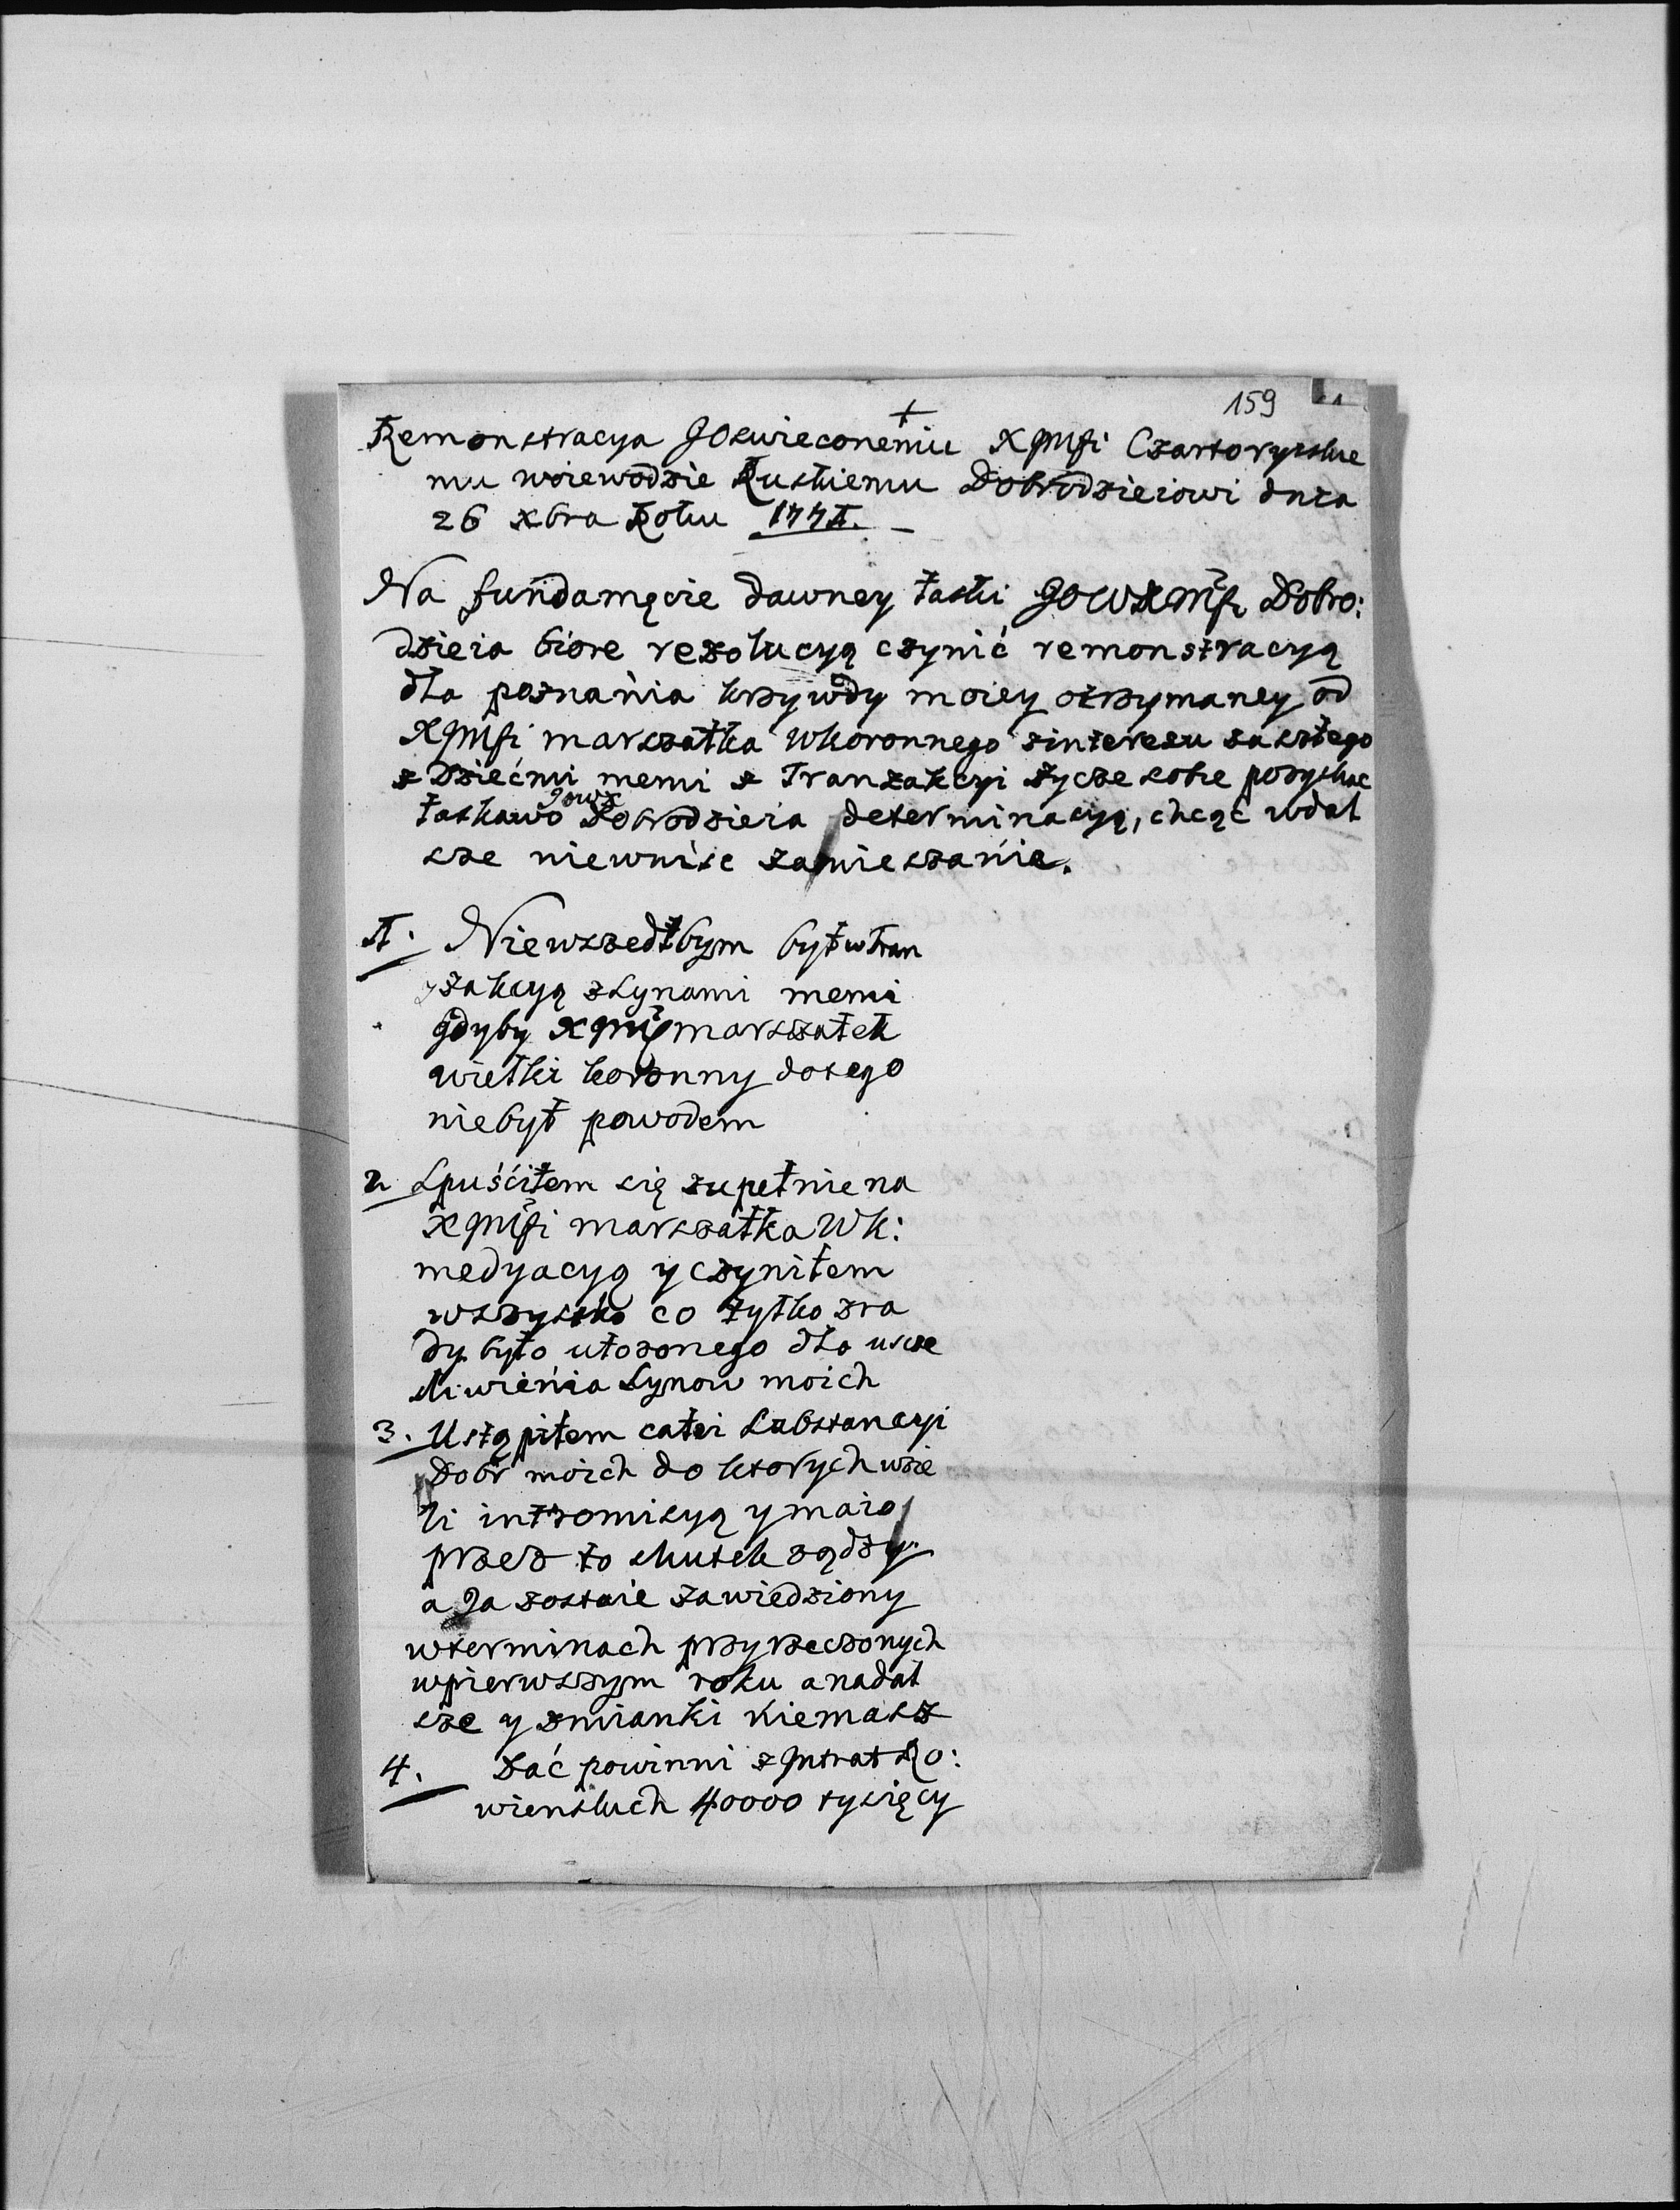 159
+
Remonstracya JOswieconemu XJMści Czartoryskie
mu woiewodzie Ruskiemu Dobrodzieiowi dnia
26 Xbra Roku 1771.
Na fundamęcie dawney łaski JOWXMści Dobro:
dzieia biore rezolucyą czynić remonstracyą
dla poznania krzywdy moiey otrzymaney od
XJMści marszałka Wkoronnego zinteresu zaszłego
z Dziećmi memi z Tranzakcyi życze sobie pozyskac
łaskawo JOWX Dobrodzieia determinacyą, chcąc wdal
sze niewnisc zamieszanie.
1. Niewszedłbym był wtran
zakcyą zsynami memi
gdyby XJMść marszałek
wielki koronny dotego
niebył powodem
2 Spuściłem się zupełnie na
XJMści marszałka WK:
medyacyą y czyniłem
wszystko co tylko zra
dy było ułozonego dla uszczę
sliwienia Synow moich
3. Ustąpiłem całei Substancyi
Dobr moich do ktorych wzie
li intromisyą y maio
przez to skutek rządzy
a Ja zostaie zawiedziony
wterminach przyrzeczonych
wpierwszym roku a nadal
sze y zmianki niemasz
4. Dać powinni z Jntrat Ro:
wienskich 40000 tysięcy